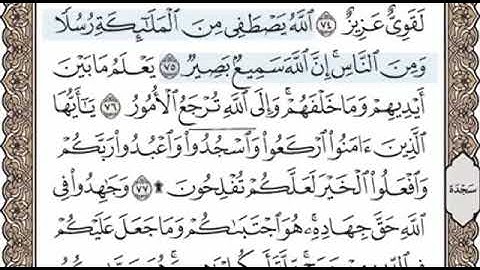 لَقَوِىٌّ عَزِيزٌ ٧٤ ٱللَّهُ يَصْطَفِى مِنَ ٱلْمَلَٰٓئِكَةِ رُسُلًا
وَمِنَ ٱلنَّاسِ ۚ إِنَّ ٱللَّهَ سَمِيعٌۢ بَصِيرٌ ٧٥ يَعْلَمُ مَا بَيْنَ
أَيْدِيهِمْ وَمَا خَلْفَهُمْ ۗ وَإِلَى ٱللَّهِ تُرْجَعُ ٱلْأُمُورُ ٧٦ يَٰٓأَيُّهَا
ٱلَّذِينَ ءَامَنُوا۟ ٱرْكَعُوا۟ وَٱسْجُدُوا۟ وَٱعْبُدُوا۟ رَبَّكُمْ
وَٱفْعَلُوا۟ ٱلْخَيْرَ لَعَلَّكُمْ تُفْلِحُونَ ۩ ٧٧ وَجَٰهِدُوا۟ فِى
سَجْدَة
ٱللَّهِ حَقَّ جِهَادِهِۦ ۚ هُوَ ٱجْتَبَىٰكُمْ وَمَا جَعَلَ عَلَيْكُمْ